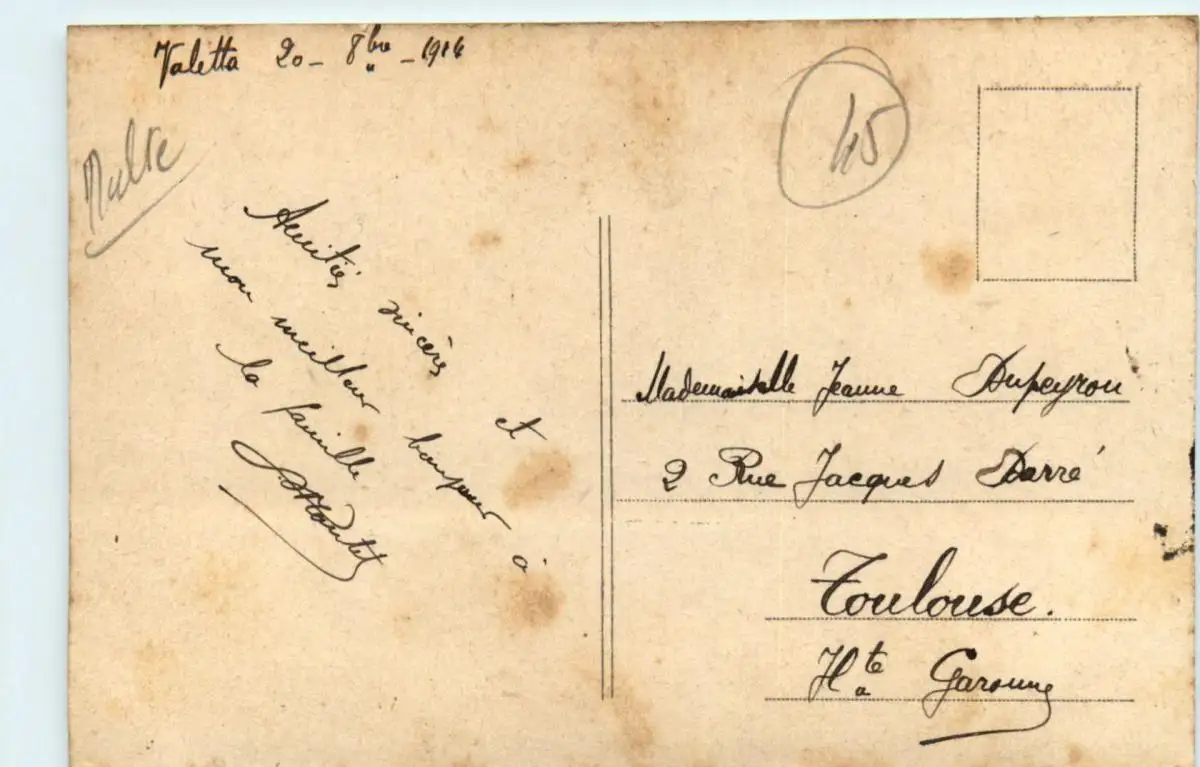 Valetta 20 - 8bre - 1914
Malte
45
Amitiés sincères et
mon meilleur bonjour à
la famille
Mademoiselle Jeanne Dupeyron
2 Rue Jacques Darré
Toulouse.
Hte Garonne